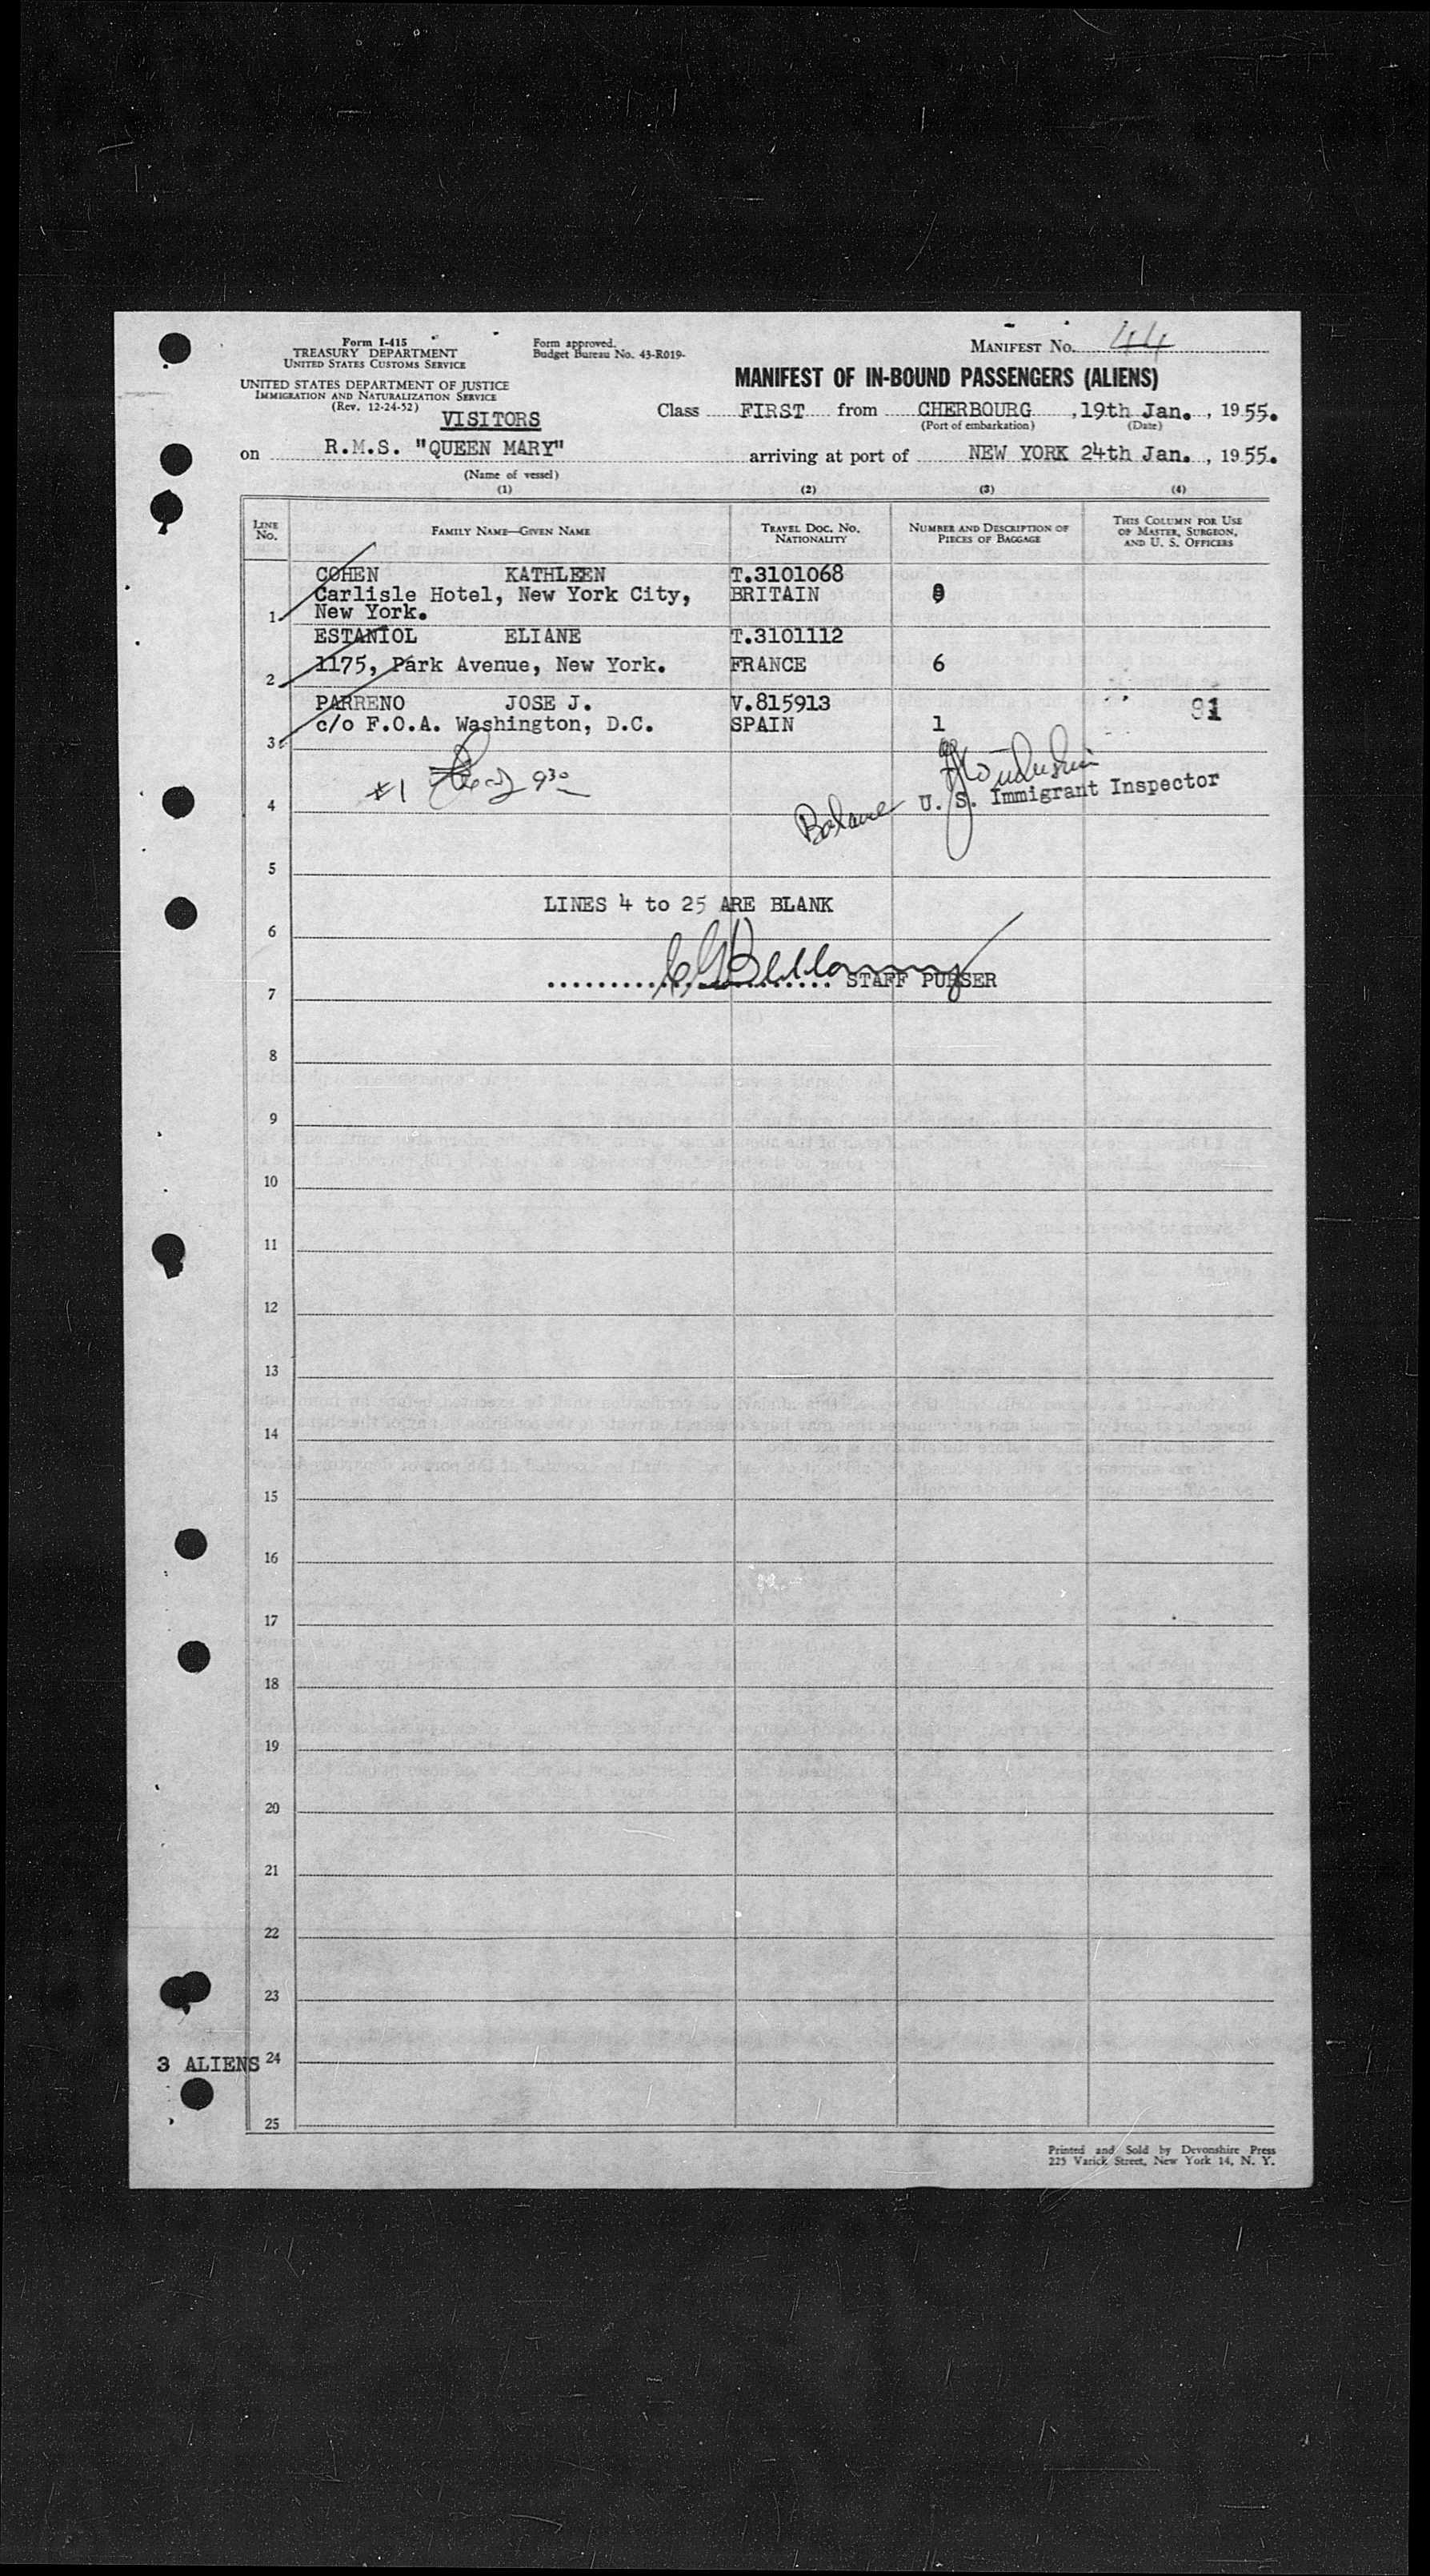 Form I-415
TREASURY DEPARTMENT
UNITED STATES CUSTOMS SERVICE
Form approved.
Budget Bureau No. 43-R019-
MANIFEST No. 44
UNITED STATES DEPARTMENT OF JUSTICE
IMMIGRATION AND NATURALIZATION SERVICE
(Rev. 12-24-52)
VISITORS
MANIFEST OF IN-BOUND PASSENGERS (ALIENS)
Class FIRST from CHERBOURG, 19th Jan., 1955.
(Port of embarkation) (Date)
on R.M.S. "QUEEN MARY" arriving at port of NEW YORK 24th Jan., 1955.
(Name of vessel)
(1) (2) (3) (4)
LINE No. FAMILY NAME—GIVEN NAME TRAVEL DOC. NO. NATIONALITY NUMBER AND DESCRIPTION OF PIECES OF BAGGAGE THIS COLUMN FOR USE OF MASTER, SURGEON, AND U. S. OFFICERS
COHEN KATHLEEN T.3101068
Carlisle Hotel, New York City, BRITAIN
1 New York.
ESTANIOL ELIANE T.3101112
1175, Park Avenue, New York. FRANCE 6
2
PARRENO JOSE J. V.815913 91
c/o F.O.A. Washington, D.C. SPAIN 1
3
#1 9 30
Balance U. S. Immigrant Inspector
4
5
LINES 4 to 25 ARE BLANK
6
STAFF PURSER
7
8
9
10
11
12
13
14
15
16
17
18
19
20
21
22
23
3 ALIENS 24
25
Printed and Sold by Devonshire Press
225 Varick Street, New York 14, N. Y.